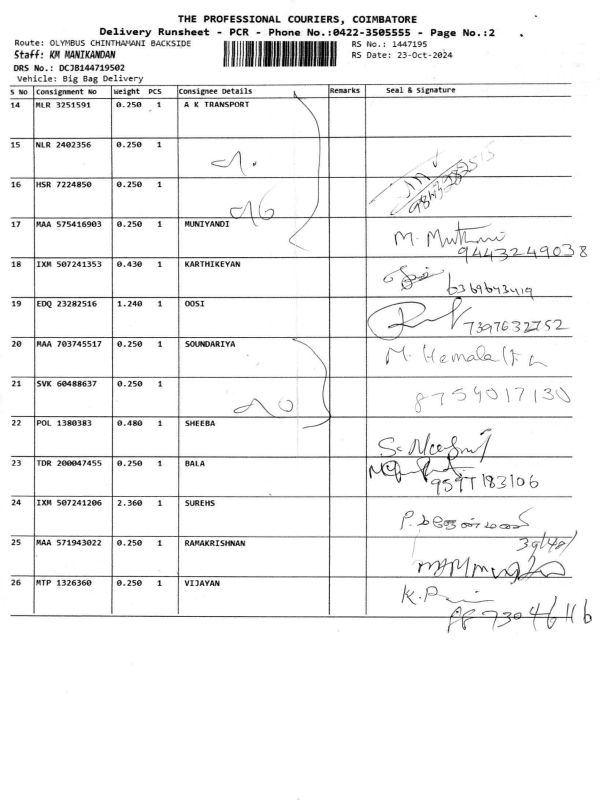 THE PROFESSIONAL COURIERS, COIMBATORE
Delivery Runsheet - PCR - Phone No.:0422-3505555 - Page No.:2
Route: OLYMBUS CHINTHAMANI BACKSIDE
RS No.: 1447195
Staff: KM MANIKANDAN
RS Date: 23-Oct-2024
DRS No.: DCJB144719502
Vehicle: Big Bag Delivery
S No Consignment No Weight PCS Consignee Details Remarks Seal & Signature
14 MLR 3251591 0.250 1 A K TRANSPORT
15 NLR 2402356 0.250 1
16 HSR 7224850 0.250 1
17 MAA 575416903 0.250 1 MUNIYANDI
M. Muthu
9443249038
18 IXM 507241353 0.430 1 KARTHIKEYAN
6369643419
19 EDQ 23282516 1.240 1 OOSI
7397632752
20 MAA 703745517 0.250 1 SOUNDARIYA
M. Hemalatha
21 SVK 60488637 0.250 1
8754017130
22 POL 1380383 0.480 1 SHEEBA
23 TDR 200047455 0.250 1 BALA
24 IXM 507241206 2.360 1 SUREHS
25 MAA 571943022 0.250 1 RAMAKRISHNAN
26 MTP 1326360 0.250 1 VIJAYAN